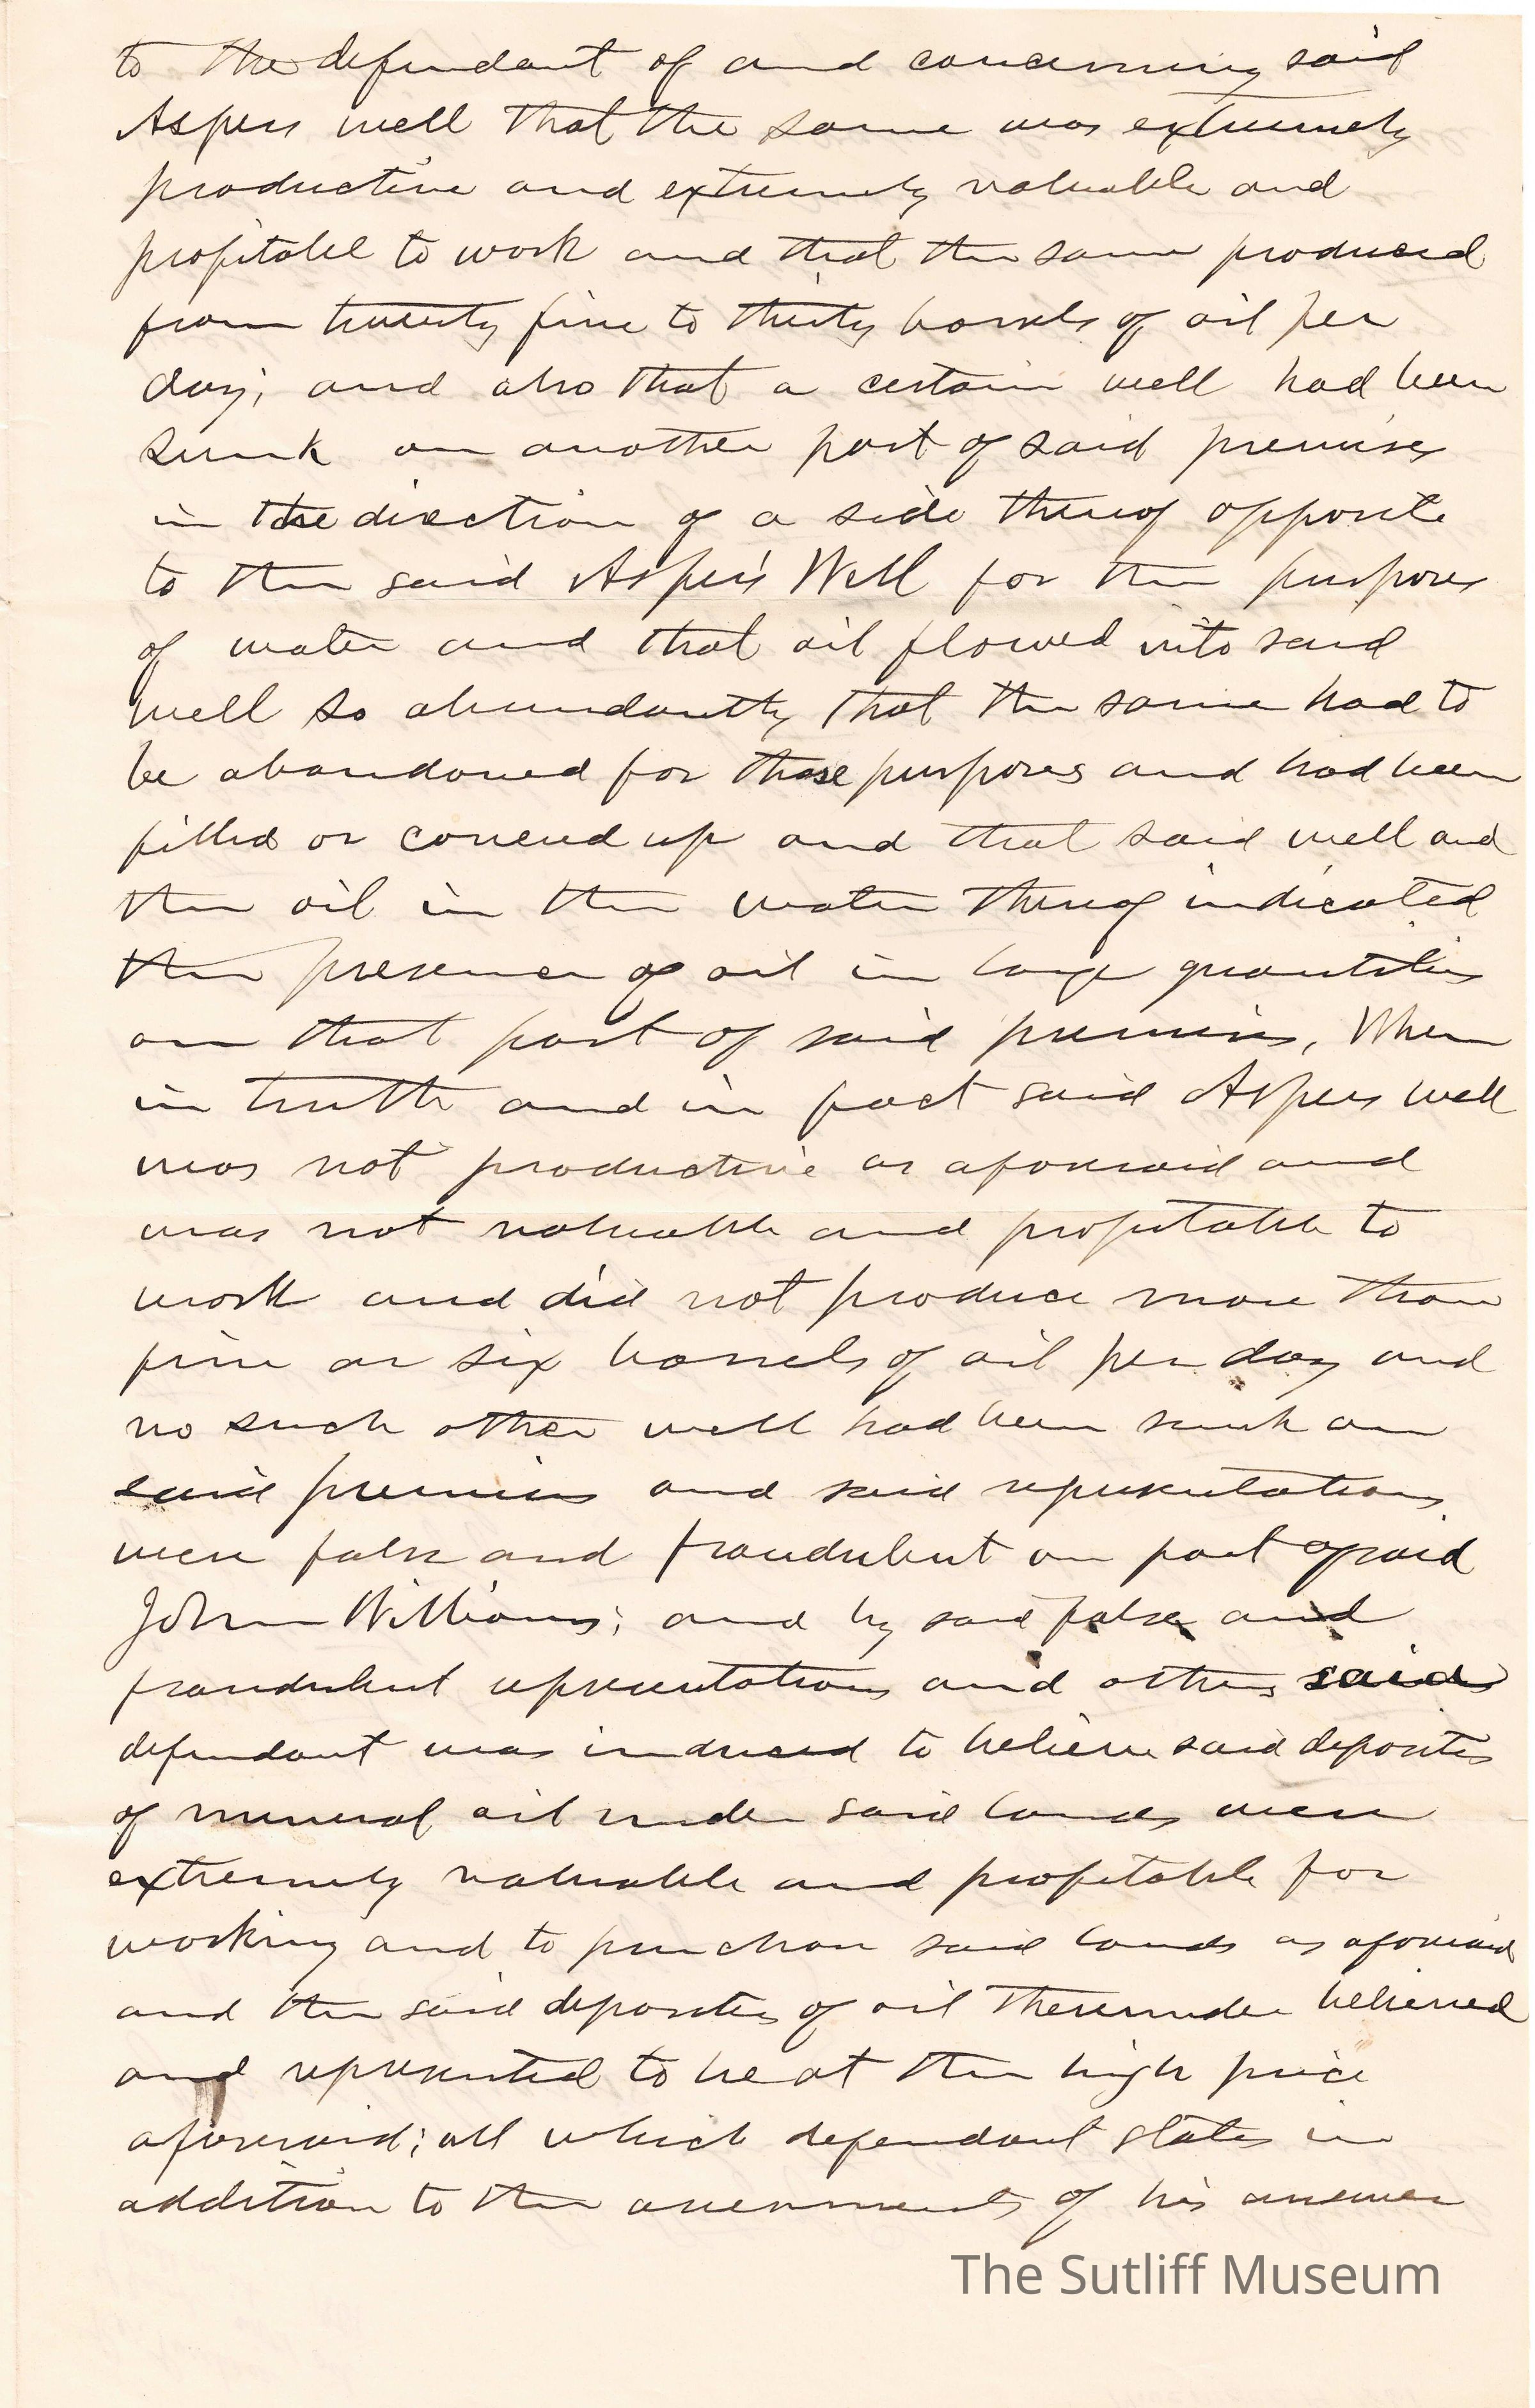 to the defendant of and concerning said
Aspers well that the same was extremely
productive and extremely valuable and
profitable to work and that the same produced
from twenty five to thirty barrels of oil per
day; and also that a certain well had been
sunk on another part of said premises
in the direction of a side thereof opposite
to the said Asper's Well for the purposes
of water and that oil flowed into said
well so abundantly that the same had to
be abandoned for those purposes and had been
filled or covered up and that said well and
the oil in the water thereof indicated
the presence of oil in large quantities
on that part of said premises, When
in truth and in fact said Aspers well
was not productive as aforesaid and
was not valuable and profitable to
work and did not produce more than
five or six barrels of oil per day and
no such other well had been sunk on
said premises and said representations
were false and fraudulent on part of said
John Williams; and by said false and
fraudulent representations and others said
defendant was induced to believe said deposites
of mineral oil under said lands were
extremely valuable and profitable for
working and to purchase said lands as aforesaid
and the said deposites of oil thereunder believed
and represented to be at the high price
aforesaid; all which defendant states in
addition to the averments of his answer
The Sutliff Museum